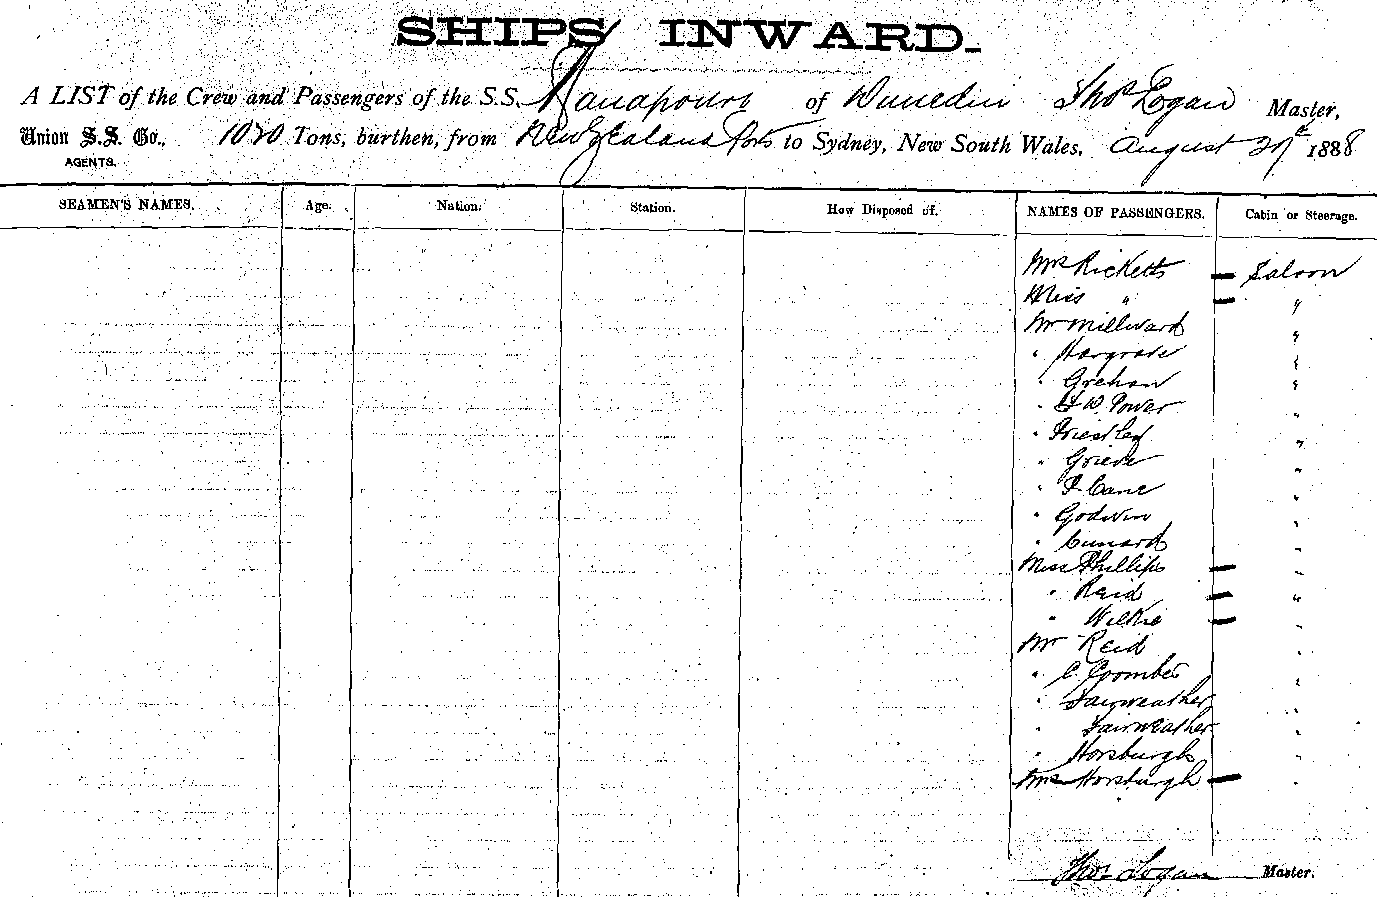 SHIPS INWARD.
A LIST of the Crew and Passengers of the S.S. Manapouri of Dunedin Thos Logan Master,
Union S.S. Co., 1020 Tons, burthen, from New Zealand Ports to Sydney, New South Wales, August 1888
AGENTS.
SEAMEN'S NAMES. Age. Nation. Station. How Disposed of. NAMES OF PASSENGERS. Cabin or Steerage.
Mrs Ricketts — Saloon
Miss " — "
Mr Millward "
" Hargrave "
" Grehan "
" W. Power "
" Priestley "
" Grieve "
" Cane "
" Godwin "
" Cunard "
Miss Phillips — "
" Reid — "
" Wilkie — "
Mr Reid "
" C. Coombes "
" Fairweather "
" Fairweather "
" Horsburgh
Mrs Horsburgh — "
Thos Logan Master.